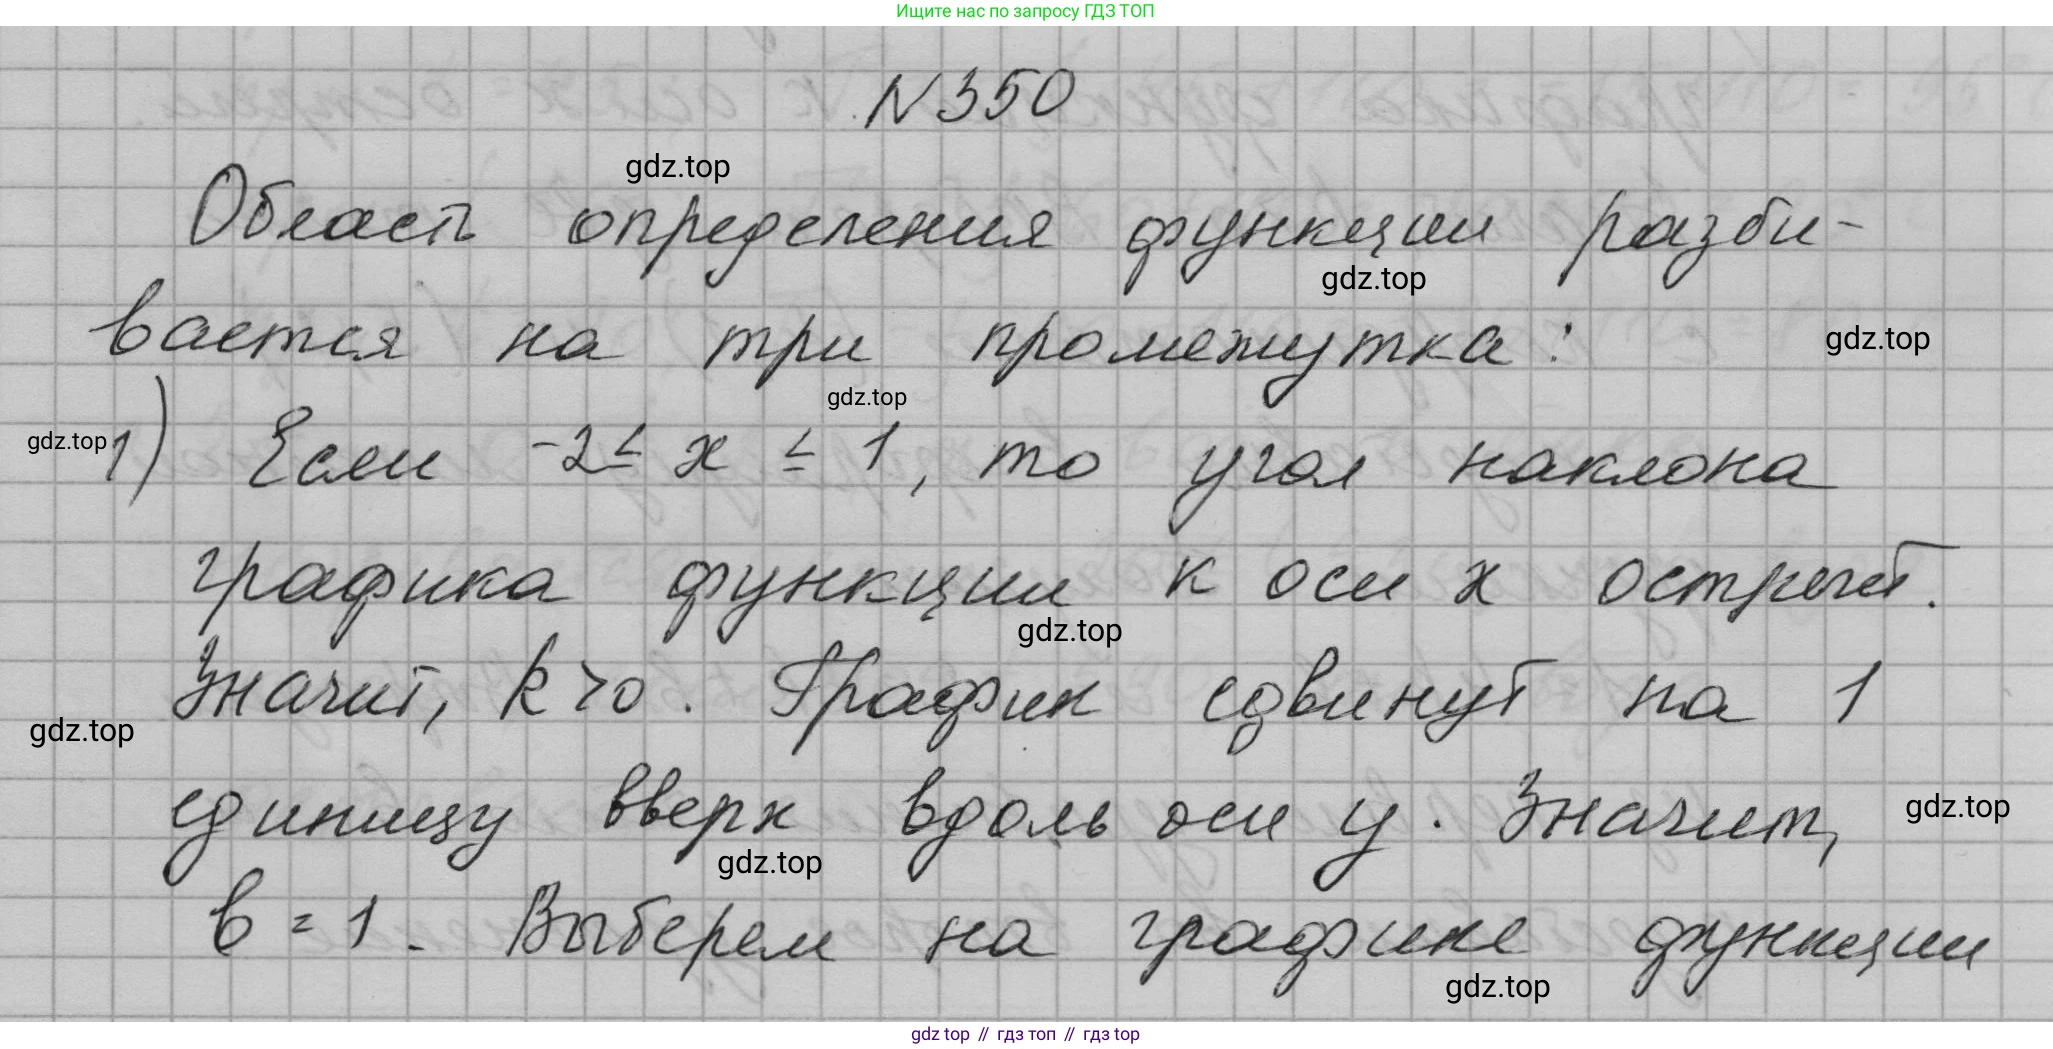 Ищите нас по запросу ГДЗ ТОП
N350
gdz.top
Область определения функции разби-
gdz.top
вается на три промежутка:
gdz.top
gdz.top
gdz.top
1) Если -2 ≤ x ≤ 1, то угол наклона
графика функции к оси x острый.
gdz.top
Значит, k>0. График сдвинут на 1
gdz.top
единицу вверх вдоль оси y. Значит,
gdz.top
gdz.top
b=1. Выберем на графике функции
gdz.top
gdz top // гдз топ // гдз top